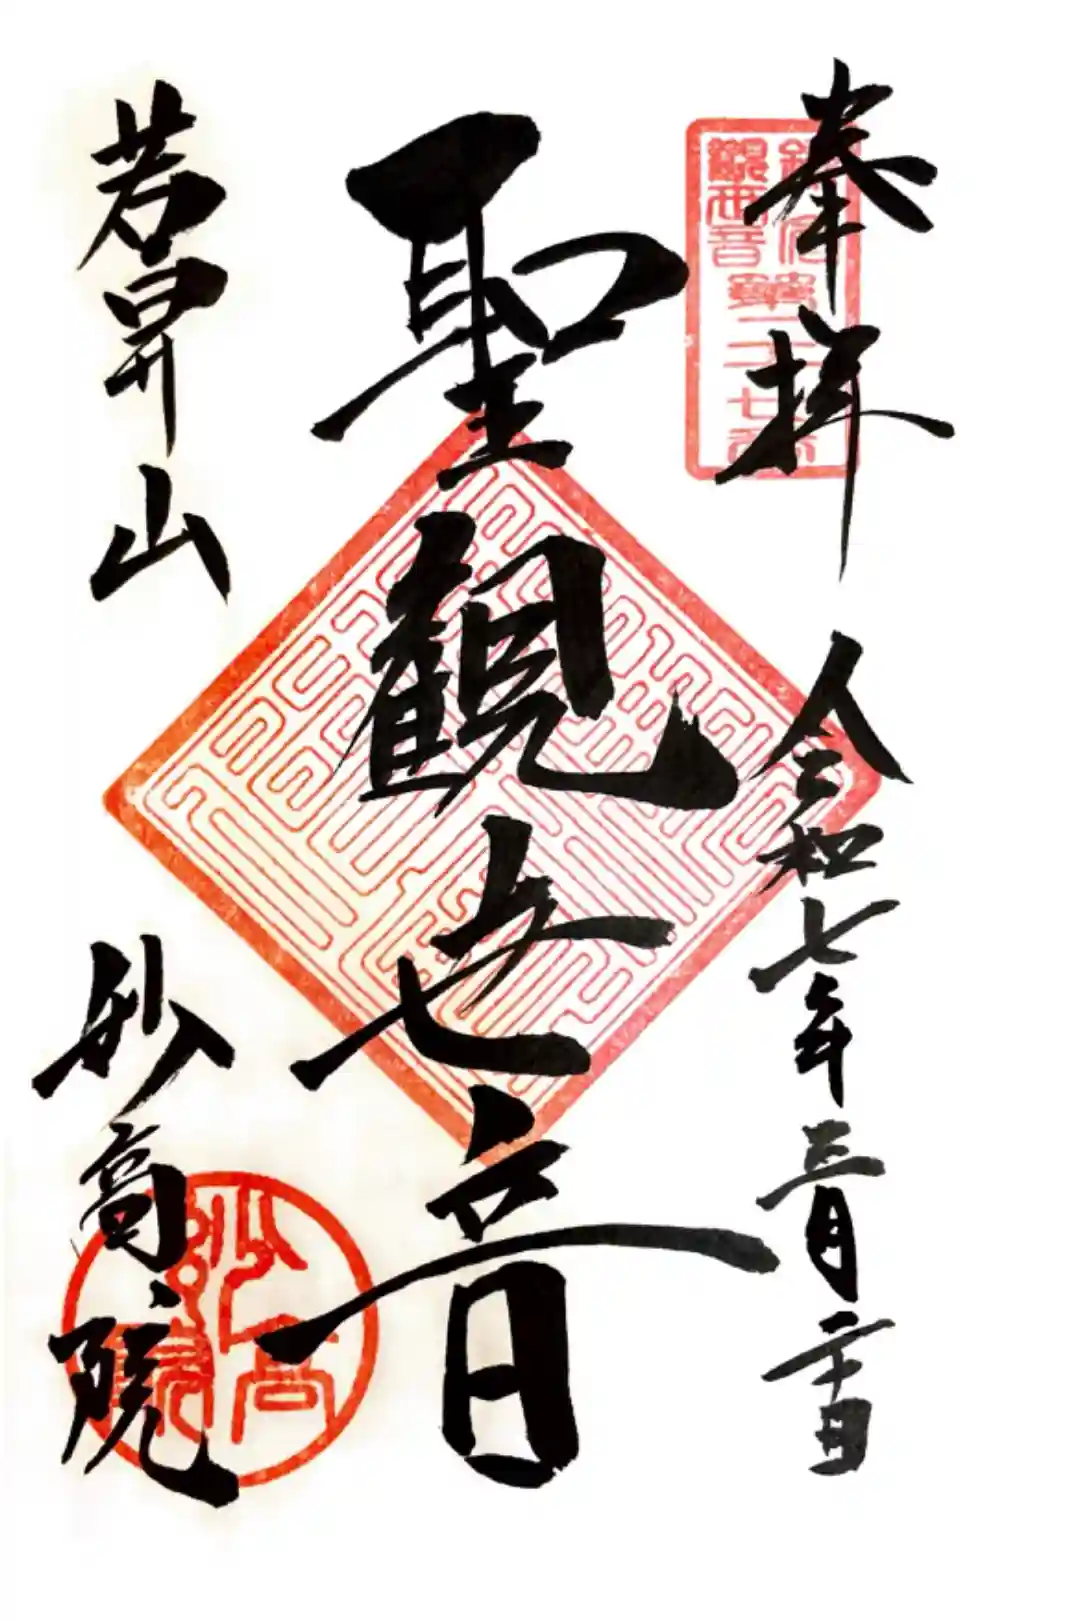 奉拝
令和七年三月二十日
聖観世音
若昇山
妙高院
鎌倉
観世音
第二十七番
妙高院